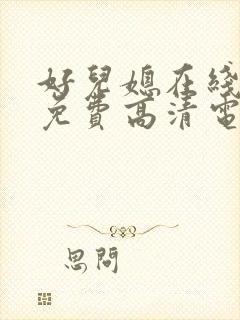 好兒媳在綫
免費高清電
思問